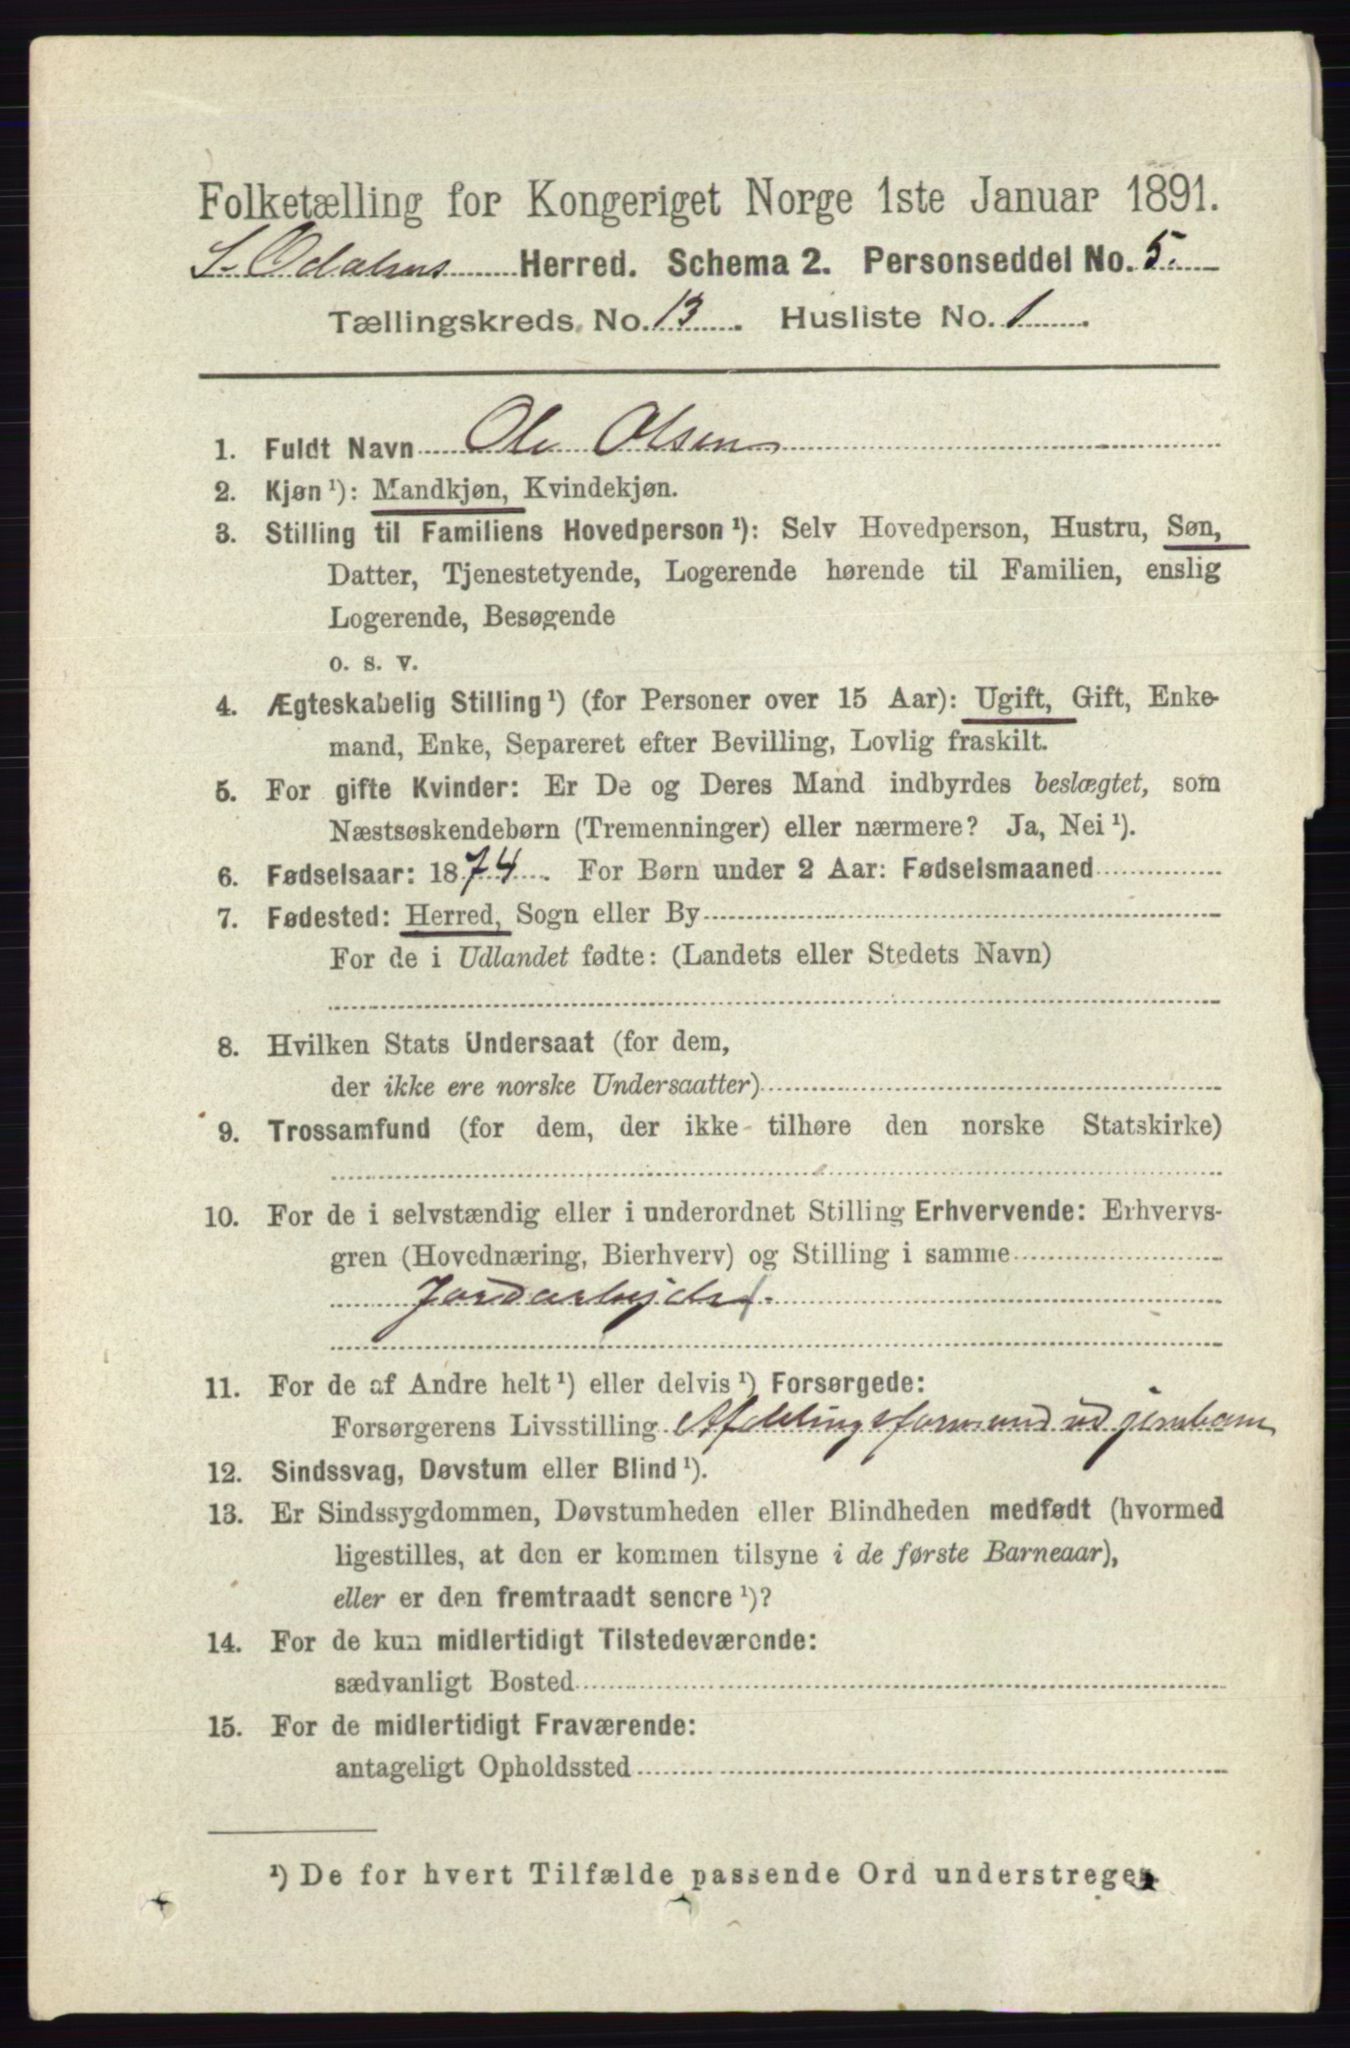 Folketælling for Kongeriget Norge 1ste Januar 1891.
S. Odalens Herred. Schema 2. Personseddel No. 5.
Tællingskreds No. 13. Husliste No. 1
1. Fuldt Navn Ole Olsen
2. Kjøn¹): Mandkjøn, Kvindekjøn.
3. Stilling til Familiens Hovedperson¹): Selv Hovedperson, Hustru, Søn,
Datter, Tjenestetyende, Logerende hørende til Familien, enslig
Logerende, Besøgende
o. s. v.
4. Ægteskabelig Stilling¹) (for Personer over 15 Aar): Ugift, Gift, Enke-
mand, Enke, Separeret efter Bevilling, Lovlig fraskilt.
5. For gifte Kvinder: Er De og Deres Mand indbyrdes beslægtet, som
Næstsøskendebørn (Tremenninger) eller nærmere? Ja, Nei¹).
6. Fødselsaar: 1874. For Børn under 2 Aar: Fødselsmaaned
7. Fødested: Herred, Sogn eller By
For de i Udlandet fødte: (Landets eller Stedets Navn)
8. Hvilken Stats Undersaat (for dem,
der ikke ere norske Undersaatter)
9. Trossamfund (for dem, der ikke tilhøre den norske Statskirke)
10. For de i selvstændig eller i underordnet Stilling Erhvervende: Erhvervs-
gren (Hovednæring, Bierhverv) og Stilling i samme
Jordarbejder.
11. For de af Andre helt¹) eller delvis¹) Forsørgede:
Forsørgerens Livsstilling Afdelingsformand ved jernbann
12. Sindssvag, Døvstum eller Blind¹).
13. Er Sindssygdommen, Døvstumheden eller Blindheden medfødt (hvormed
ligestilles, at den er kommen tilsyne i de første Barneaar),
eller er den fremtraadt senere¹)?
14. For de kun midlertidigt Tilstedeværende:
sædvanligt Bosted
15. For de midlertidigt Fraværende:
antageligt Opholdssted
¹) De for hvert Tilfælde passende Ord understreges